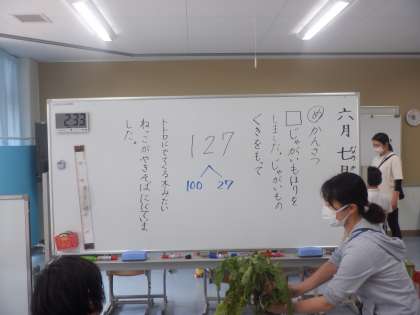 六月七日
め かんさつ
じゃがいもほりを
しました。じゃがいもの
くきをもって
127
100 27
トトロにでてくる木みたい
ねっこがやきそばににていま
した。